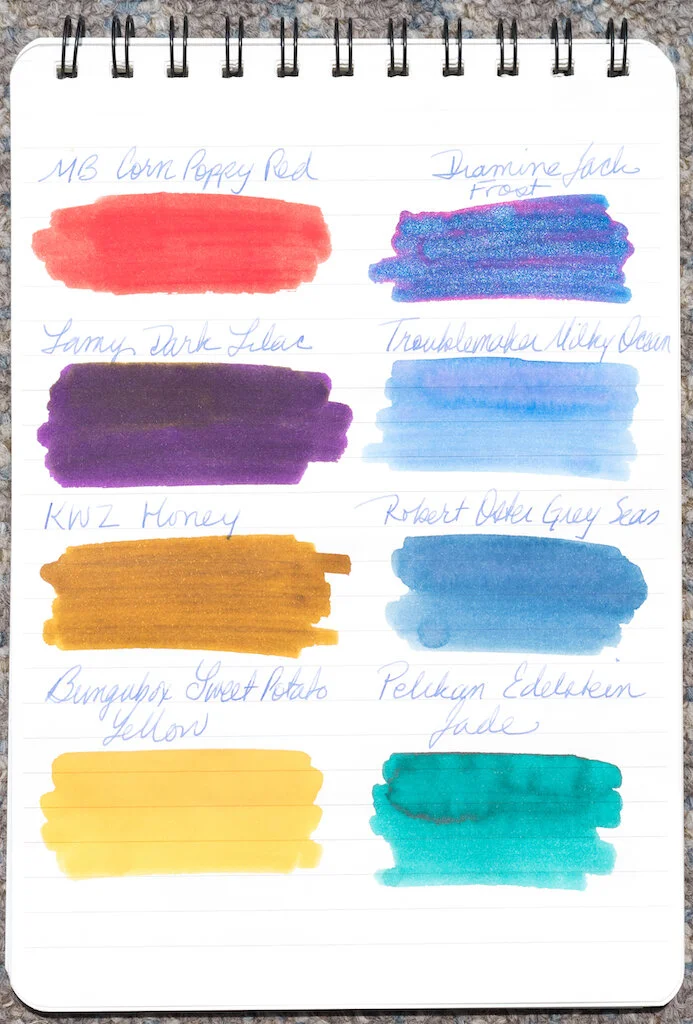 MB Corn Poppy Red
Diamine Jack
Frost
Lamy Dark Lilac
Troublemaker Milky Ocean
KWZ Honey
Robert Oster Grey Seas
Bungubox Sweet Potato
Yellow
Pelikan Edelstein
Jade